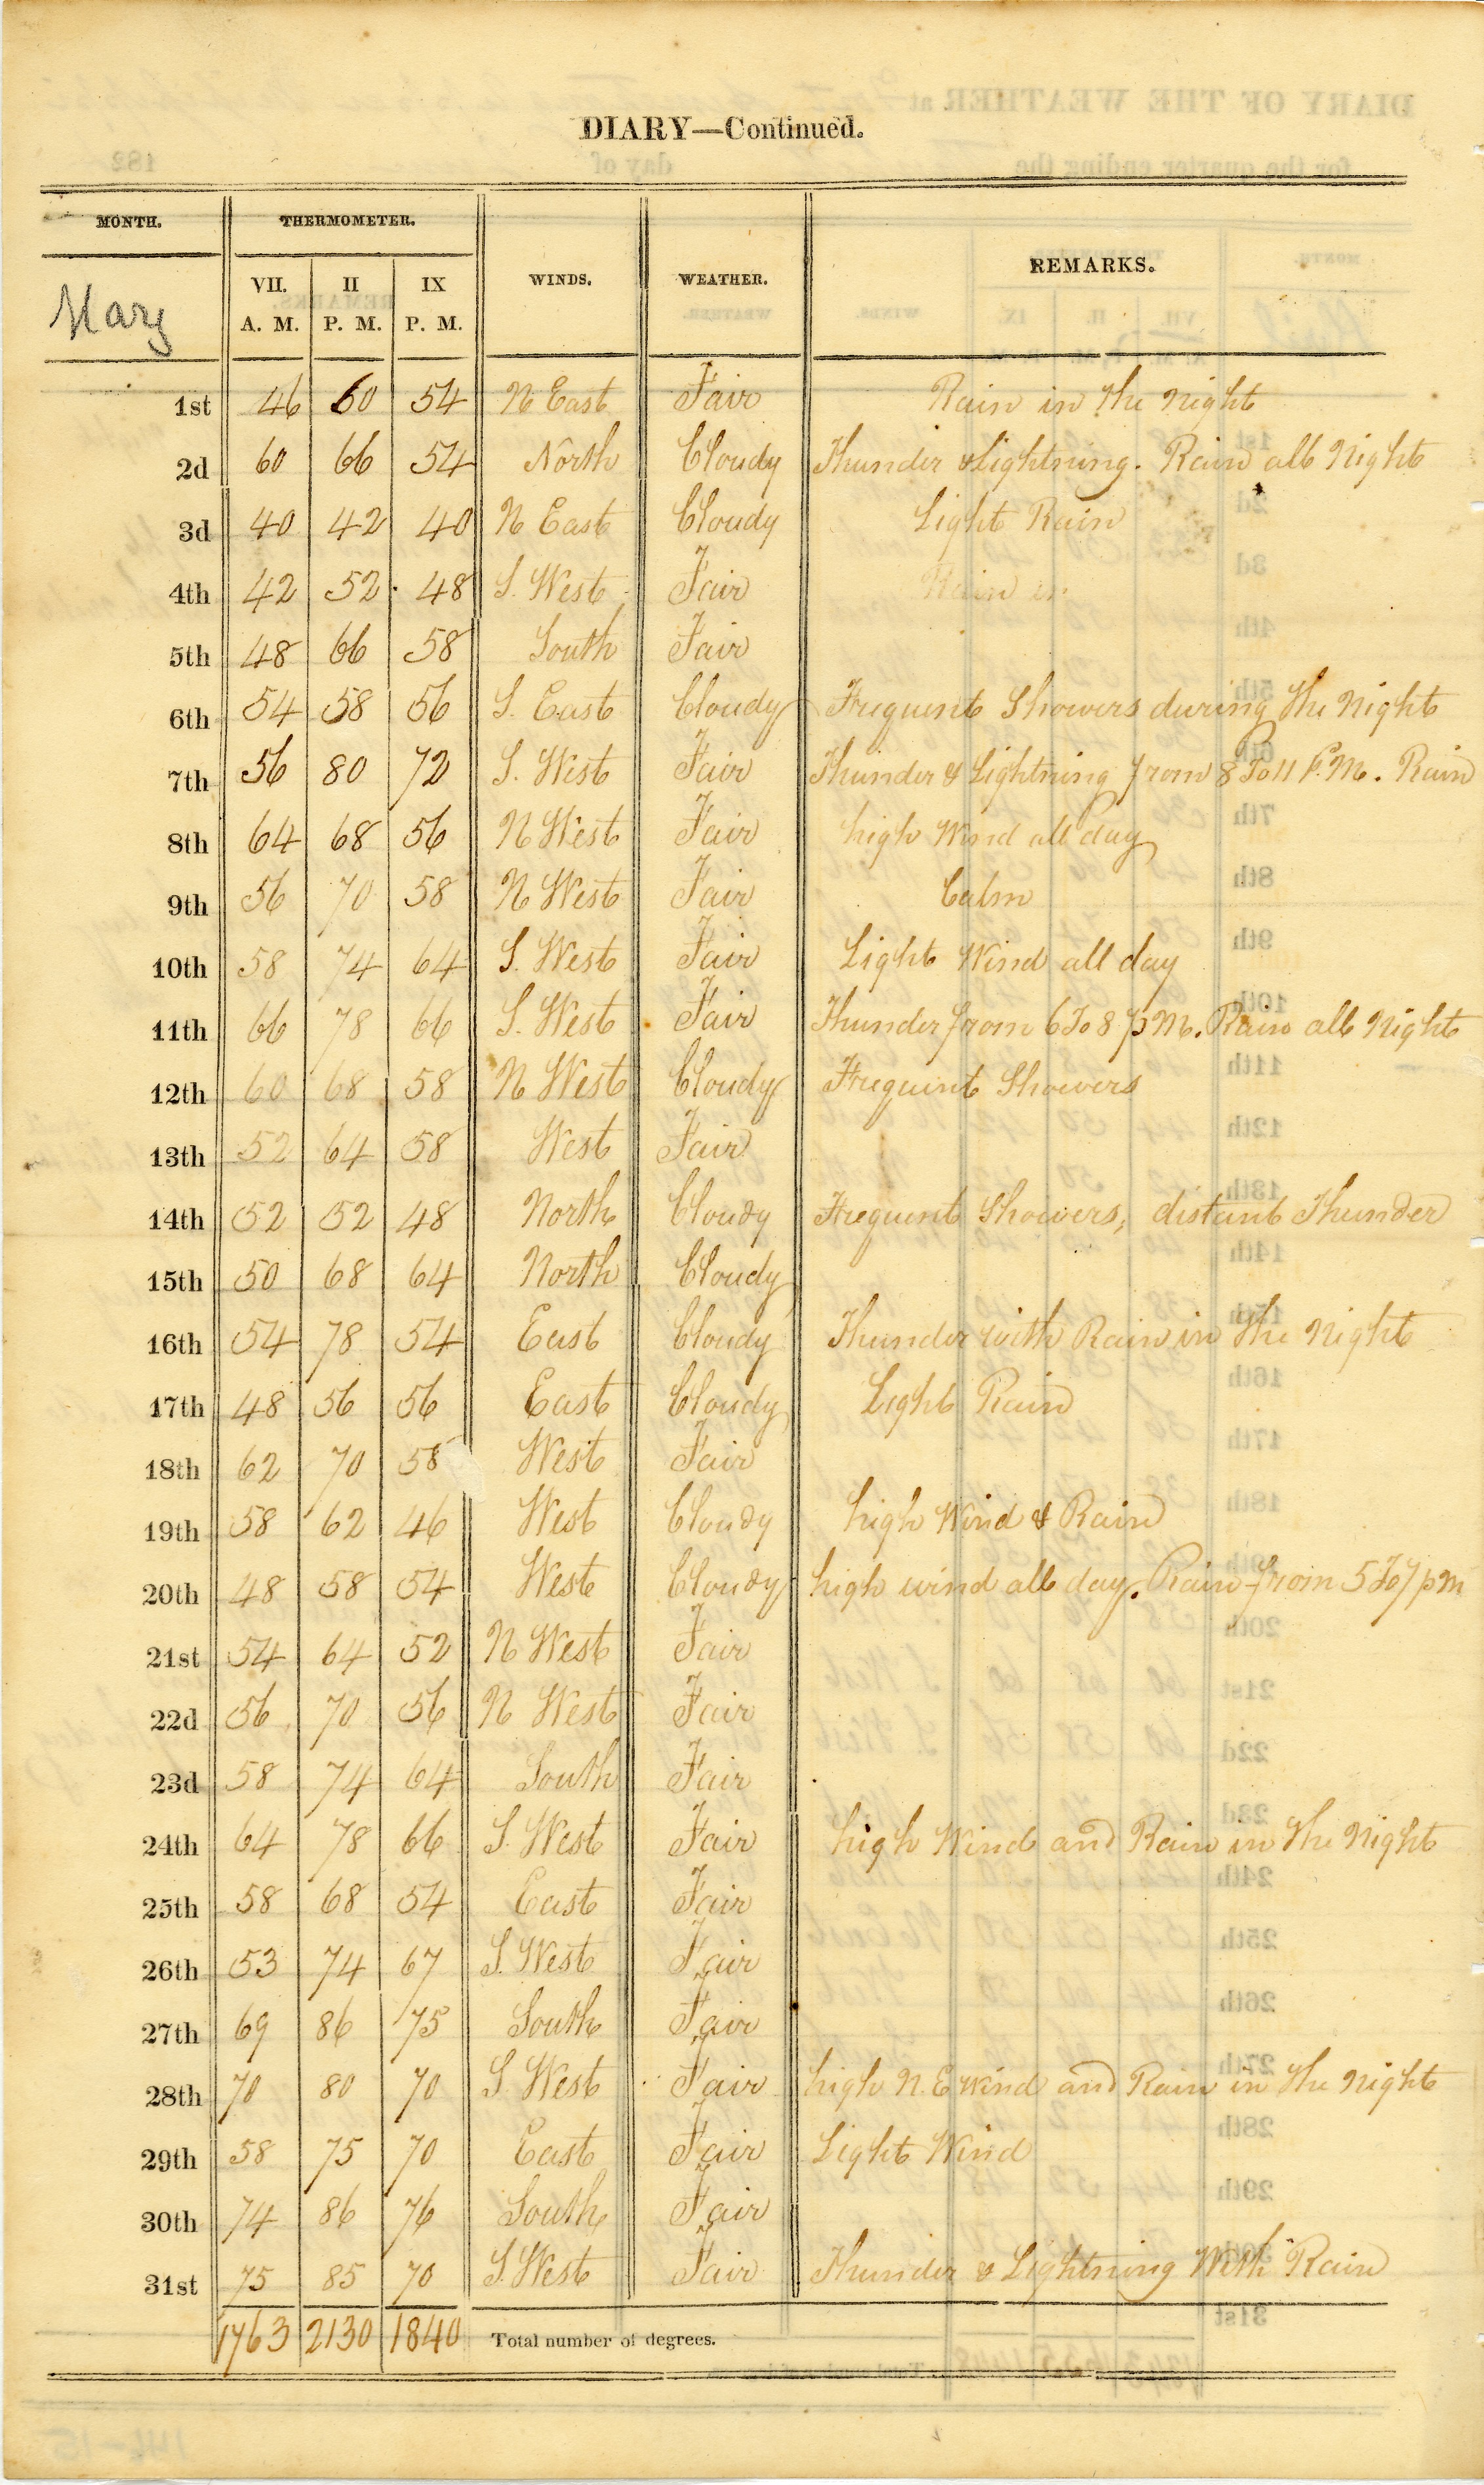 DIARY—Continued.
MONTH. THERMOMETER. WINDS. WEATHER. REMARKS.
VII. II IX
A. M. P. M. P. M.
May
1st 46 60 54 N East Fair Rain in the night
2d 60 66 54 North Cloudy Thunder & Lightning. Rain all Night
3d 40 42 40 N East Cloudy Light Rain
4th 42 52 48 S. West Fair Rain in
5th 48 66 58 South Fair
6th 54 58 56 S. East Cloudy Frequent Showers during the Night
7th 56 80 72 S. West Fair Thunder & Lightning from 8 To 11 P.M. Rain
8th 64 68 56 N West Fair high Wind all day
9th 56 70 58 N West Fair Calm
10th 58 74 64 S. West Fair Light Wind all day
11th 66 78 66 S. West Fair Thunder from 6 To 8 p M. Rain all Night
12th 60 68 58 N West Cloudy Frequent Showers
13th 52 64 58 West Fair
14th 52 52 48 North Cloudy Frequent Showers, distant Thunder
15th 50 68 64 North Cloudy
16th 54 78 54 East Cloudy Thunder with Rain in the Night
17th 48 56 56 East Cloudy Light Rain
18th 62 70 58 West Fair
19th 58 62 46 West Cloudy high Wind & Rain
20th 48 58 54 West Cloudy high wind all day. Rain from 5 To 7 p m
21st 54 64 52 N West Fair
22d 56 70 56 N West Fair
23d 58 74 64 South Fair
24th 64 78 66 S. West Fair high Wind and Rain in the Night
25th 58 68 54 East Fair
26th 53 74 67 S. West Fair
27th 69 86 75 South Fair
28th 70 80 70 S West Fair high N. E wind and Rain in the Night
29th 58 75 70 East Fair Light Wind
30th 74 86 76 South Fair
31st 75 85 70 S. West Fair Thunder & Lightning With Rain
1763 2130 1840 Total number of degrees.